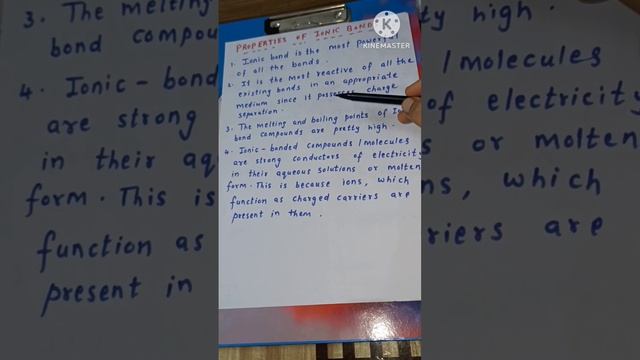 PROPERTIES OF IONIC BOND
1. Ionic bond is the most Powerful
of all the bonds.
2. It is the most reactive of all the
existing bonds in an appropriate
medium since it possesses charge
separation.
3. The melting and boiling points of
bond compounds are pretty high.
4. Ionic-bonded compounds/molecules
are strong conductors of electricity
in their aqueous solutions or molten
form. This is because ions, which
function as charged carriers are
present in them.
KINEMASTER
3. The melting
bond compou
4. Ionic-bond
are strong
in their aq
form. This is
function as
present in
ty high.
/molecules
of electricity
s or molten
ns, which
riers are